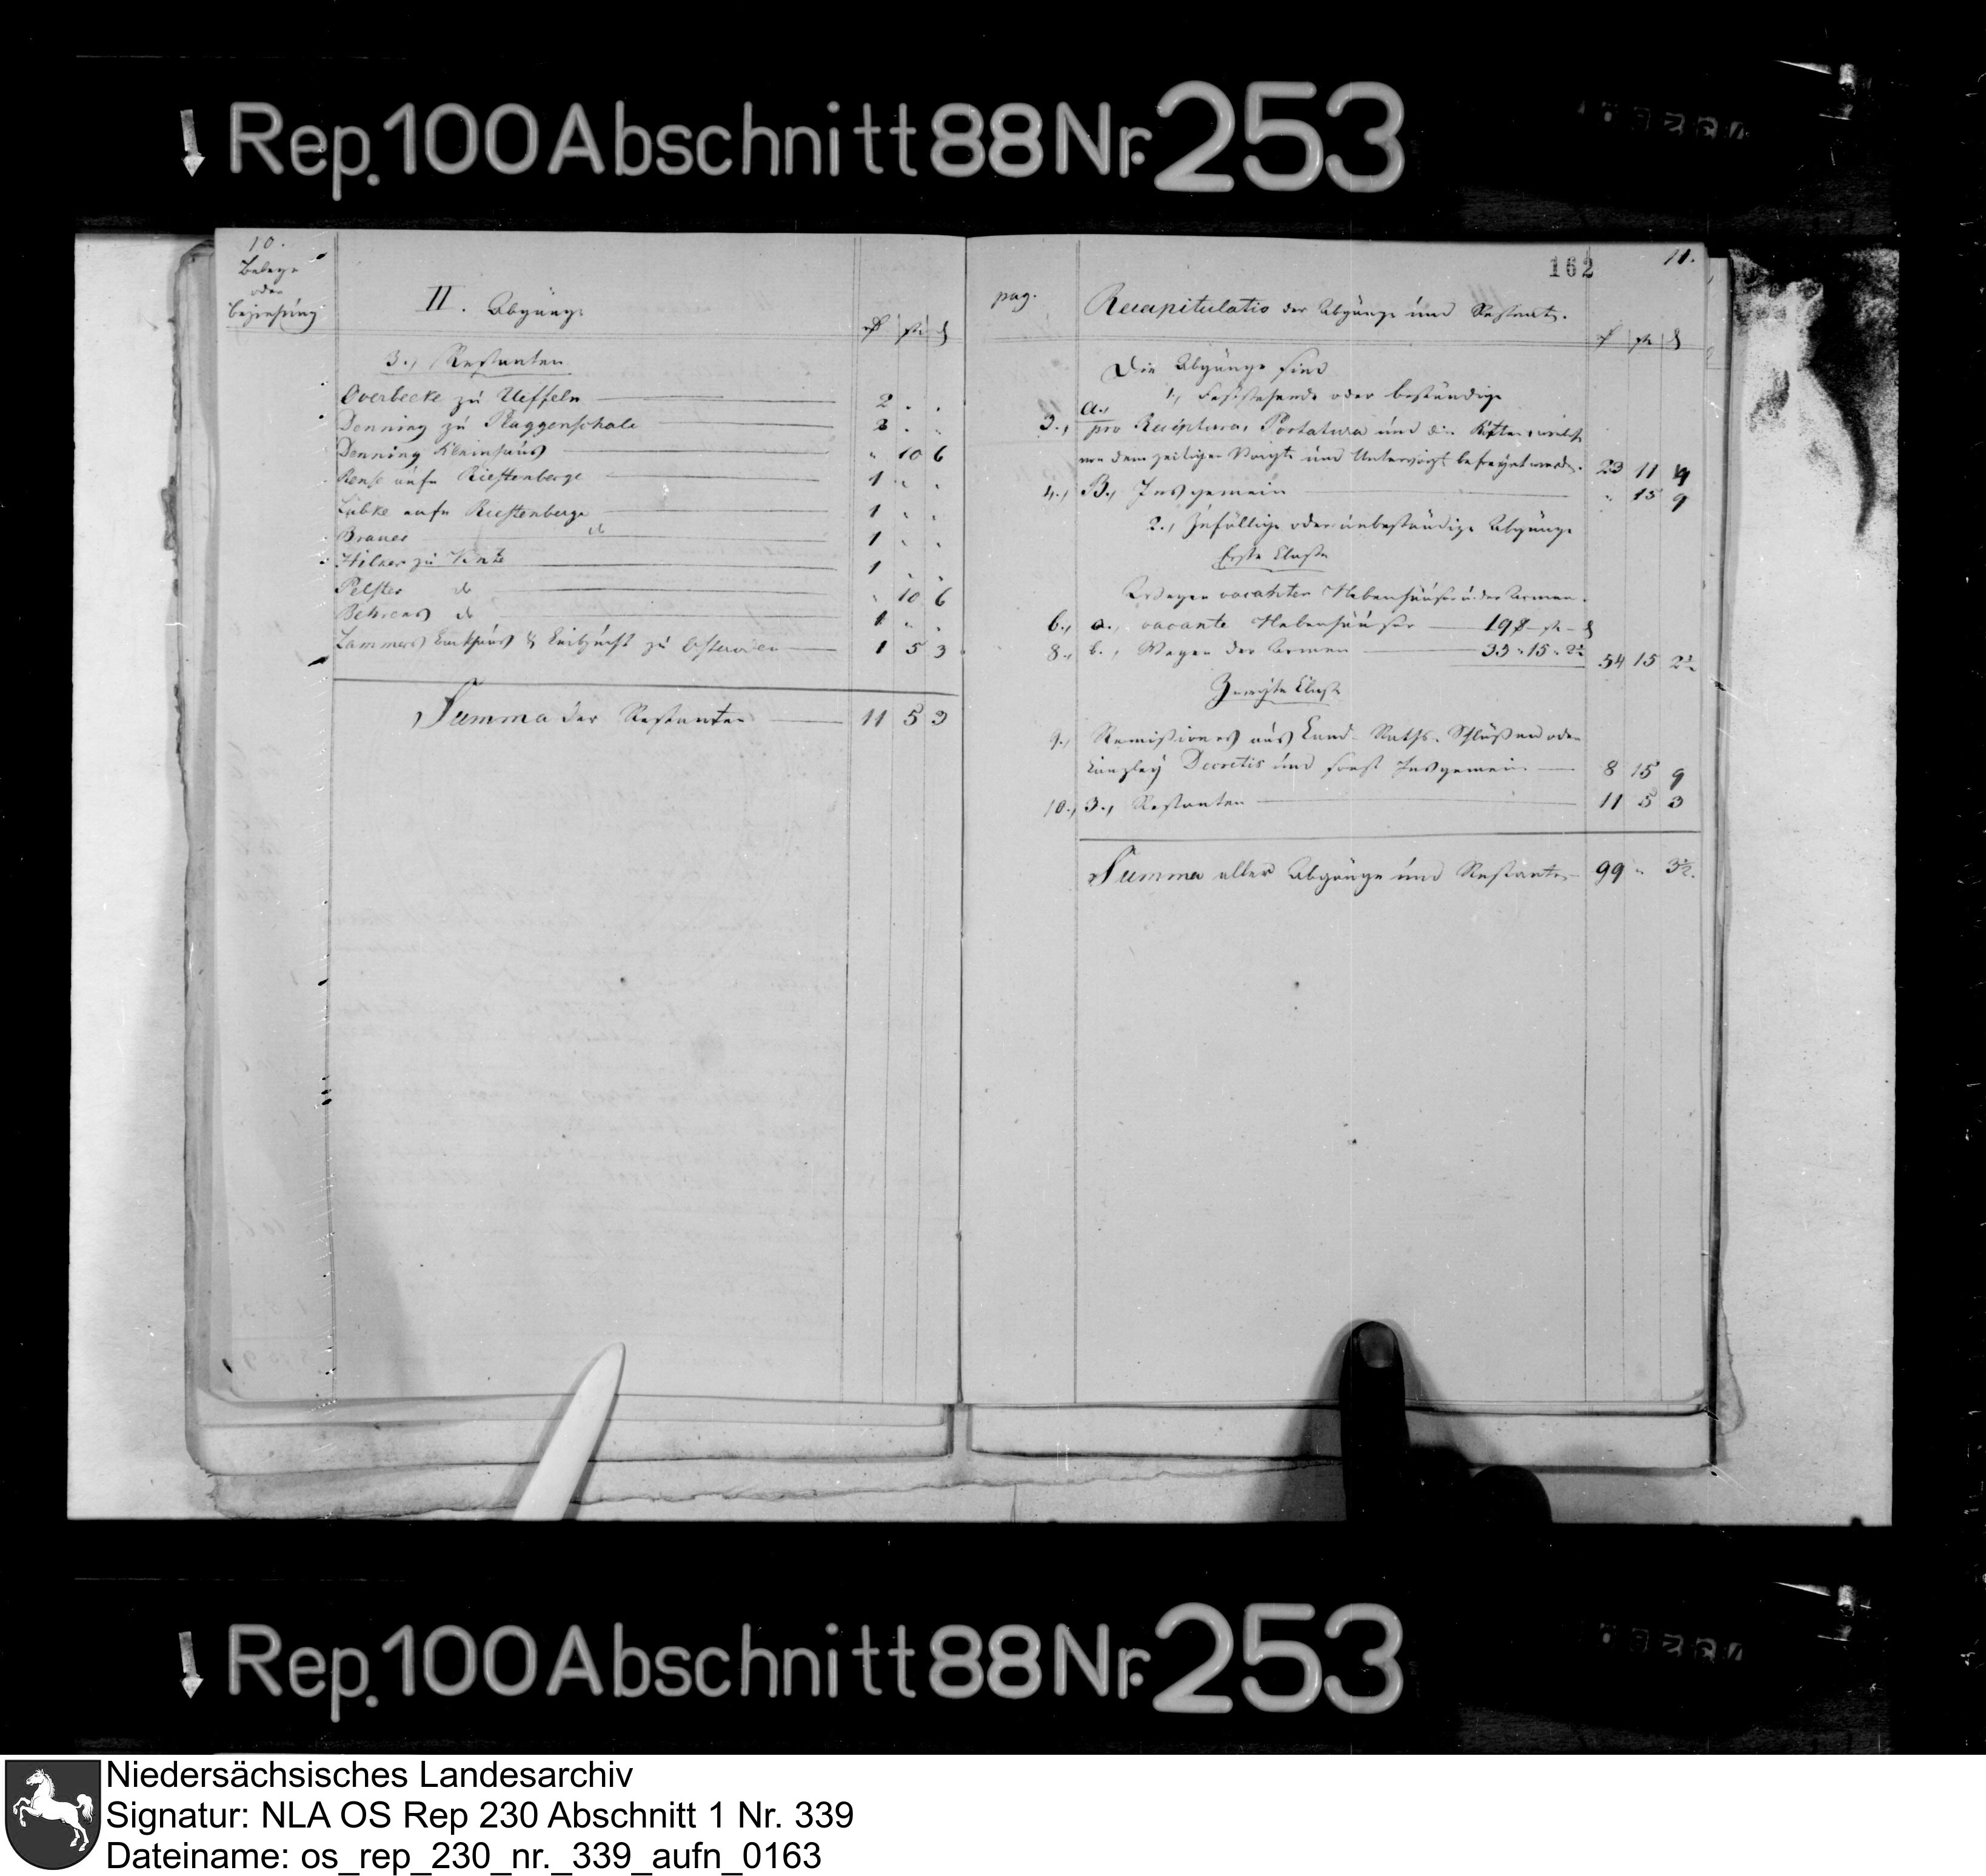 Rep. 100 Abschnitt 88 Nr. 253
10.
Belege
oder
Beziehung
II. Abgänge
rℓ ß ₰
3., Restanten
Overbecke zu Ueffeln 2 . .
Denning zu Plaggenschale 2 . .
Denning Kleinhaus " 10 6
Rense aufn Riestenberge 1 " .
Lübke aufn Riestenberge 1 " .
Brauer do 1 " .
Hilker zu Vinte 1 . .
Pelster do " 10 6
Behrens do 1 " .
Lammers Backhaus & Leibzucht zu Osteroden 1 5 3
Summa der Restanten 11 5 3
162
11.
pag.
Recapitulatio der Abgänge und Restanten.
rℓ ß ₰
Die Abgänge sind
1., Feststehende oder beständige
a.,
3., pro Receptura, Portatura und die
von dem zeitigen Voigte und Untervoigt befreyet werden. 23 11 4
4., B., Insgemein " 15 9
2., Zufällige oder unbeständige Abgänge
Erste Classe
Wegen vacanter Nebenhäuser u. der Armen.
6., a., vacante Nebenhäuser 19 rℓ - ß - ₰
8., b., Wegen der Armen 35 " 15 " 2½ 54 15 2½
Zweyte Classe
9., Remissiones aus Land-Raths-Schlüßen oder
Canzley Decretis und sonst Insgemein 8 15 9
10., 3., Restanten 11 5 3
Summa aller Abgänge und Restanten 99 " 3½.
Rep. 100 Abschnitt 88 Nr. 253
Niedersächsisches Landesarchiv
Signatur: NLA OS Rep 230 Abschnitt 1 Nr. 339
Dateiname: os_rep_230_nr._339_aufn_0163